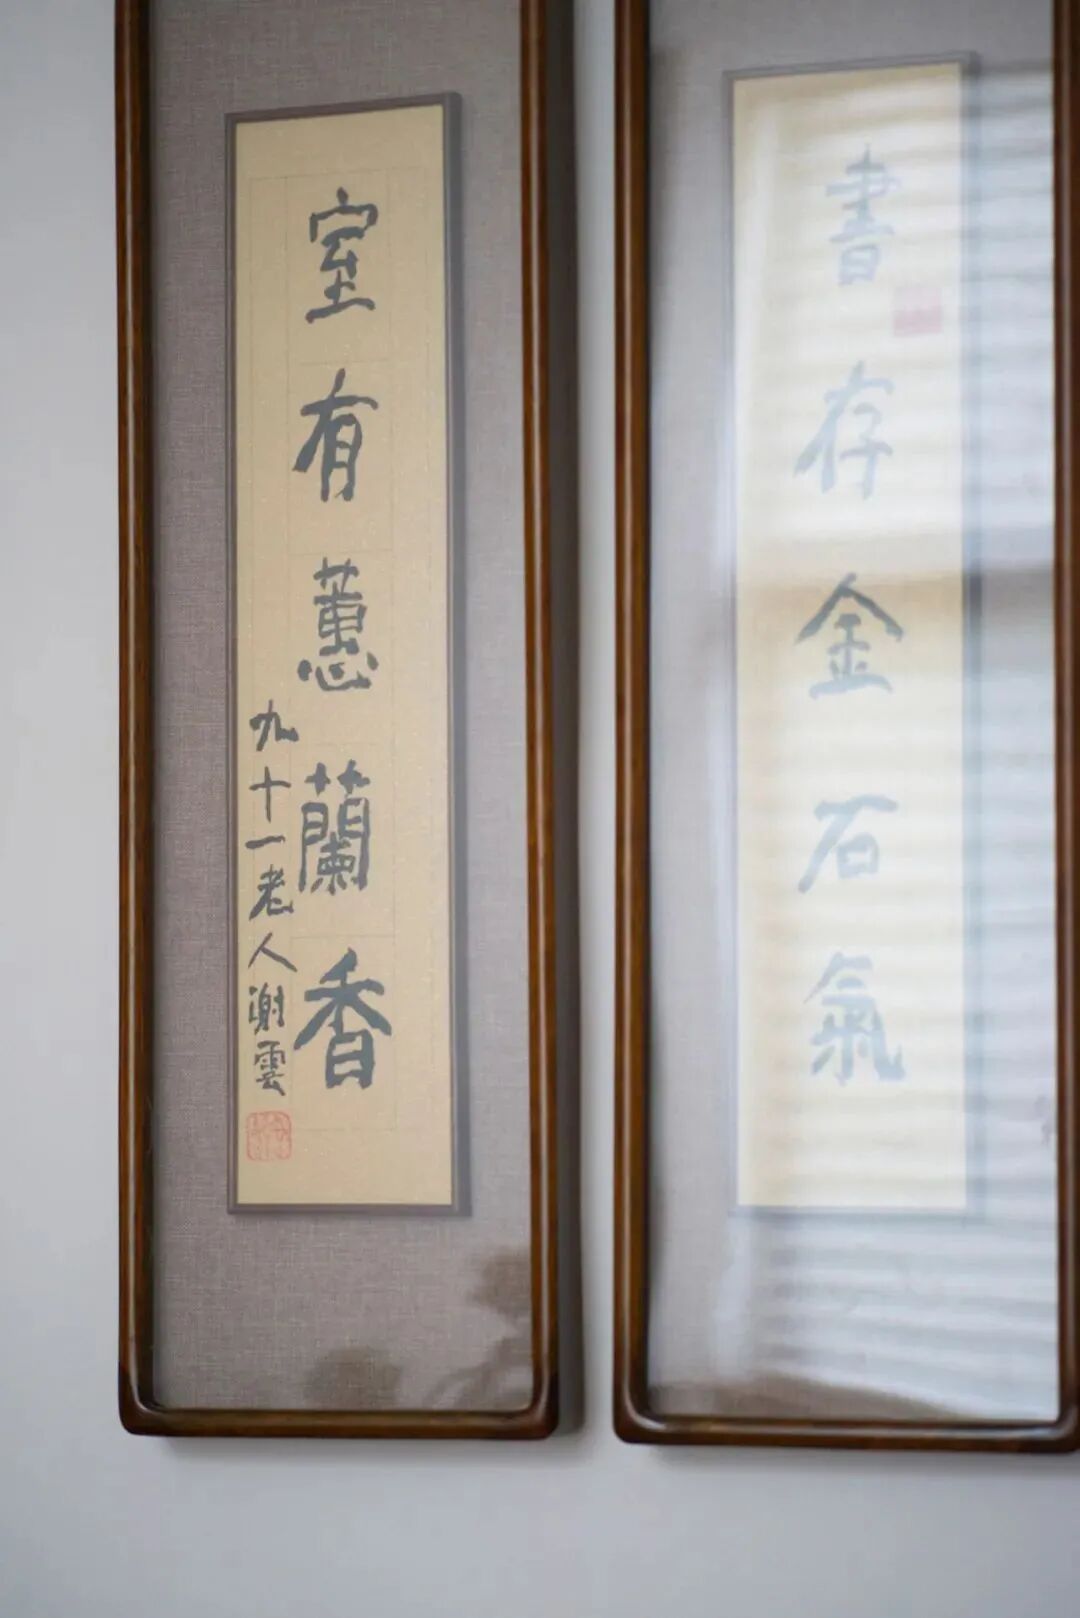 書存金石氣
室有蕙蘭香
九十一老人謝雲